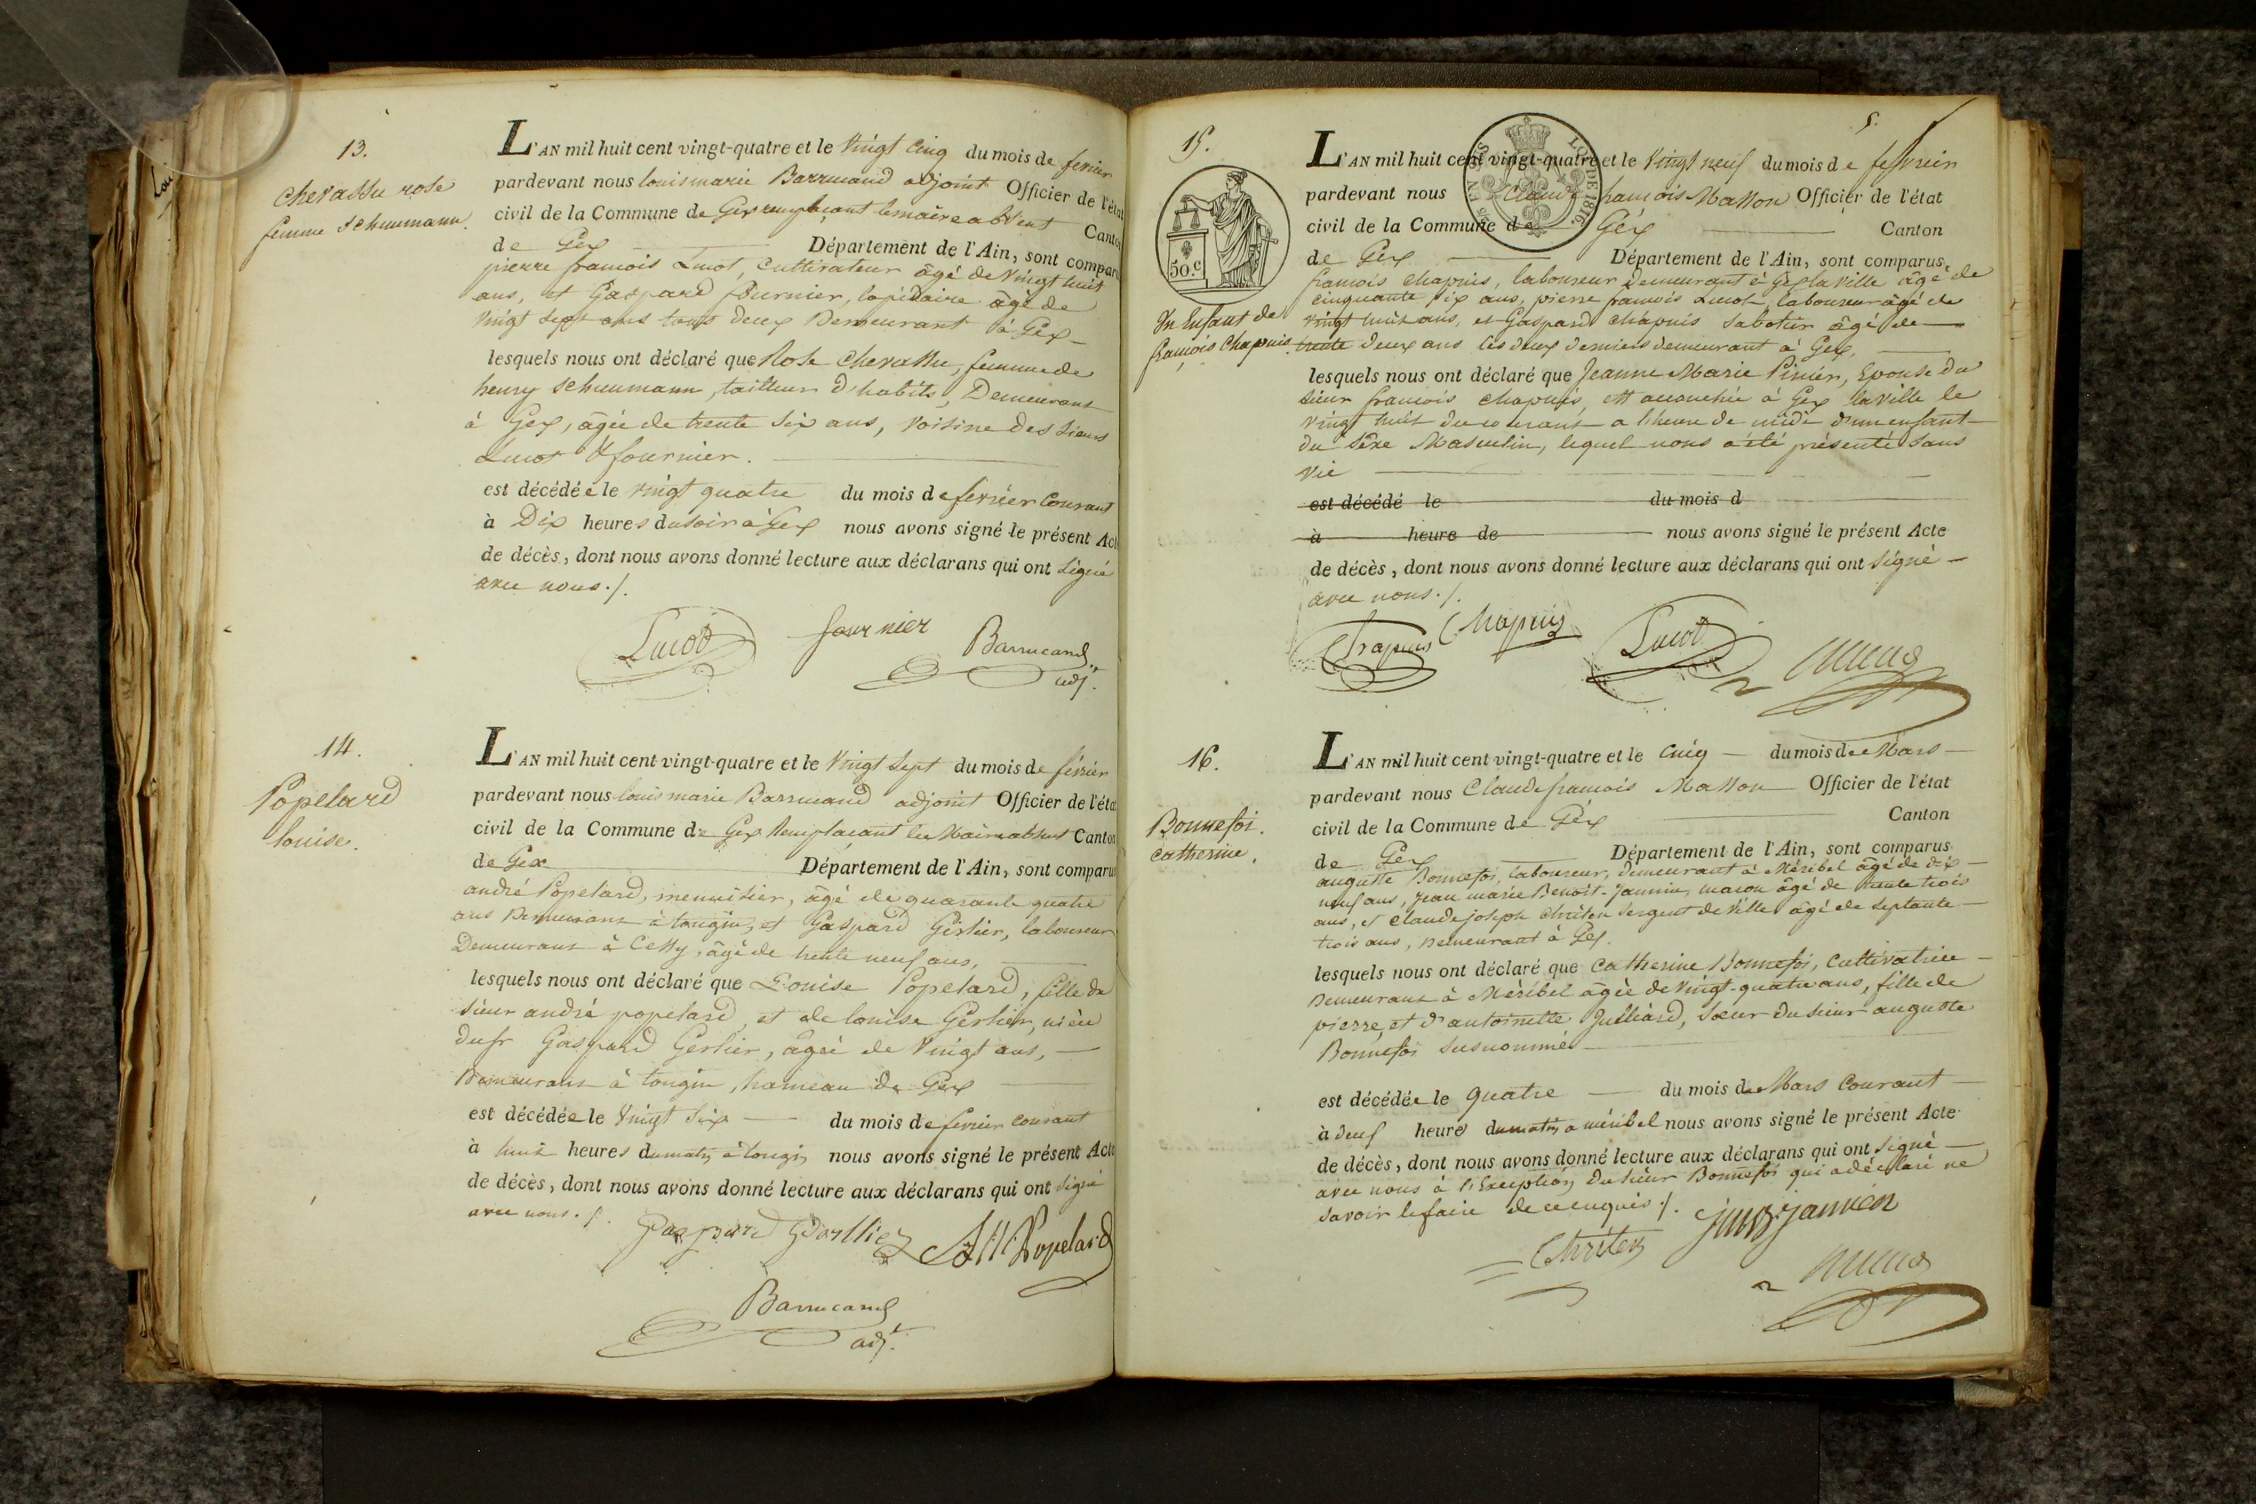 13.
chevassu rose
femme schuumann.
L'AN mil huit cent vingt-quatre et le vingt cinq du mois de fevrier
pardevant nous louis marie Barrucand adjoint Officier de l'état
civil de la Commune de Gex remplaçant le maire absent Canton
de Gex Département de l'Ain, sont comparu
pierre francois Lucot, cultivateur âgé de vingt huit
ans, et Gaspard fournier, lapidaire âgé de
vingt sept ans tous deux Demeurant à Gex
lesquels nous ont déclaré que Rose chevassu, femme de
henry schuumann, tailleur d'habits, Demeurant
à Gex, âgée de trente six ans, voisine des sieurs
Lucot & fournier.
est décédée le vingt quatre du mois de fevrier Courant
à Dix heures du soir à Gex nous avons signé le présent Act
de décès, dont nous avons donné lecture aux déclarans qui ont signé
avec nous ./.
Lucot fournier Barrucand
adjt.
14.
Popelard
louise.
L'AN mil huit cent vingt-quatre et le vingt sept du mois de février
pardevant nous louis marie Barrucand adjoint Officier de l'état
civil de la Commune de Gex Remplaçant le Maire absent Canton
de Gex Département de l'Ain, sont comparu
andré Popelard, menuisier, âgé de quarante quatre
ans Demeurant à tougin, et Gaspard Gerlier, laboureur
Demeurant à Cessy, âgé de trente neuf ans,
lesquels nous ont déclaré que Louise Popelard, fille du
sieur andré popelard, et de louise Gerlier, nièce
du sr Gaspard Gerlier, âgée de vingt ans,
Demeurant à tougin, hameau de Gex
est décédée le vingt six du mois de fevrier courant
à huit heures du matin à tougin nous avons signé le présent Acte
de décès, dont nous avons donné lecture aux déclarans qui ont signé
avec nous ./.
Popelard
Barrucand
adjt.
5.
15.
50.c
LOI DE 1816.
Un Enfant de
françois Chapuis.
L'AN mil huit cent vingt-quatre et le vingt neuf du mois de fevrier
pardevant nous Claude francois Masson Officier de l'état
civil de la Commune de Géx Canton
de Gex Département de l'Ain, sont comparus
francois Chapuis, laboureur Demeurant à Gex la ville âgé de
cinquante six ans, pierre francois Lucot, laboureur âgé de
vingt huit ans, et Gaspard chapuis sabotier âgé de
trente deux ans les deux derniers demeurant à Gex,
lesquels nous ont déclaré que Jeanne Marie Pinier, Epouse du
sieur francois chapuis, est accouchée à Gex la ville le
vingt huit du courant a l'heure de midi d'un enfant
du sexe Masculin, lequel nous a été présenté sans
vie
est décédé le du mois d
à heure de nous avons signé le présent Acte
de décès, dont nous avons donné lecture aux déclarans qui ont signé
avec nous ./.
Chapuis Chapuis Lucot
16.
Bonnefoi.
catherine.
L'AN mil huit cent vingt-quatre et le cinq du mois de Mars
pardevant nous Claude francois Masson Officier de l'état
civil de la Commune de Géx Canton
de Gex Département de l'Ain, sont comparus
auguste Bonnefoi, laboureur, demeurant à Méribel âgé de dix
neuf ans, jean marie Benoit-Jannin, macon âgé de trente trois
ans, et Claude joseph Chriten sergent de Ville âgé de septante
trois ans, Demeurant à Gex.
lesquels nous ont déclaré que Catherine Bonnefoi, Cultivatrice
Demeurant à Méribel âgée de vingt-quatre ans, fille de
pierre, et d'antoinette Julliard, sœur du sieur auguste
Bonnefoi susnommé
est décédée le quatre du mois de Mars Courant
à heure du matin a méribel nous avons signé le présent Acte
de décès, dont nous avons donné lecture aux déclarans qui ont signé
avec nous à l'Exception du sieur Bonnefoi qui a déclaré ne
savoir le faire de ce enquis ./.
Chriten